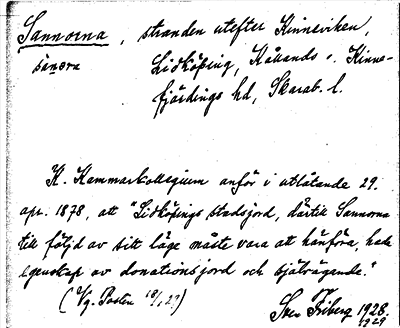 Sannorna, stranden utefter Kinneviken,
sanora Lidköping, Kållands o. Kinne-
fjärdings hd, Skarab. l.
K. Kammarkollegium anför i utlåtande 29.
apr. 1878, att "Lidköpings stadsjord, därtill Sannorna
till följd av sitt läge måste vara at hänföra, hade
egenskap av donationsjord och självägande."
(Vg. Posten 18/1 29)
Sten Friberg 1928.
1929